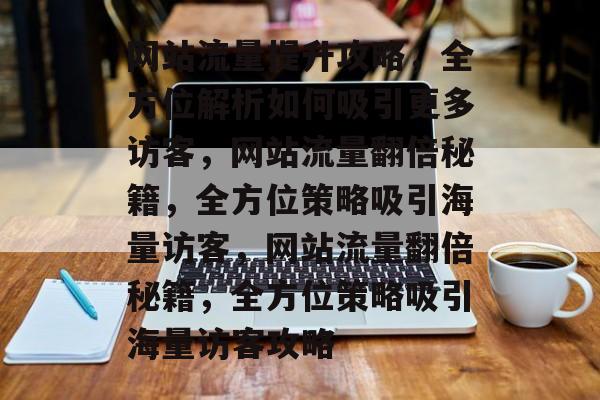 网站流量提升攻略，全
方位解析如何吸引更多
访客，网站流量翻倍秘
籍，全方位策略吸引海
量访客，网站流量翻倍
秘籍，全方位策略吸引
海量访客攻略